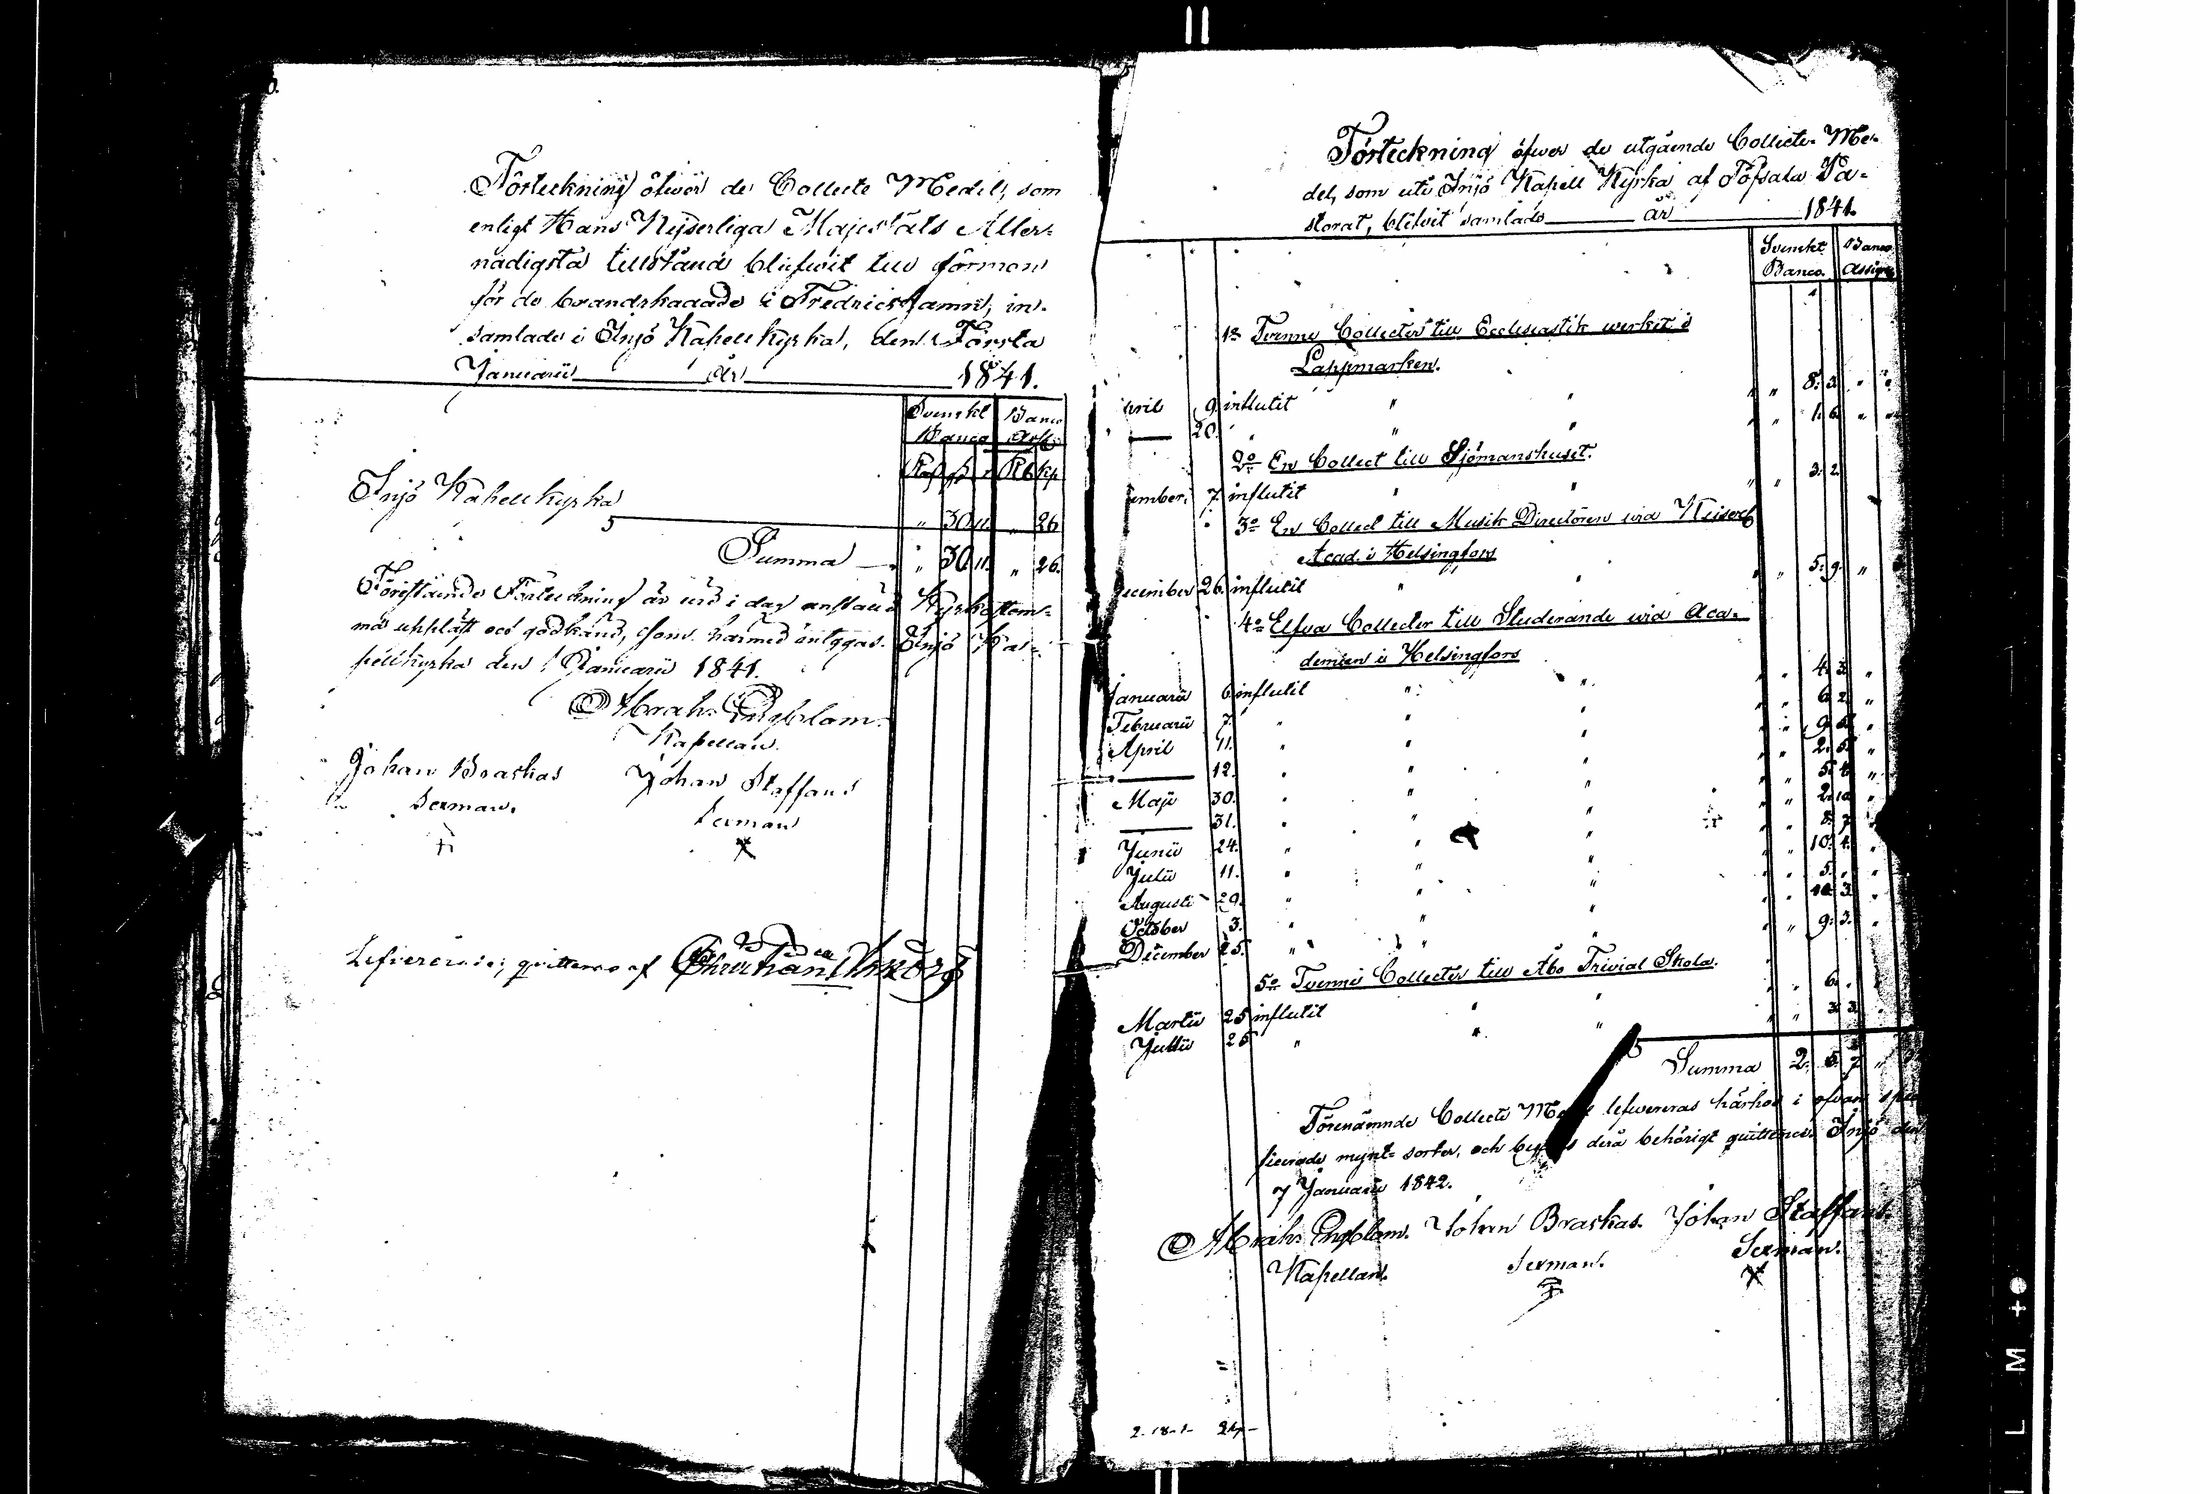 Förteckning öfwer de Collecte Medel, som
enligt Hans Kejserliga Majestäts Aller-
nådigsta tillstånd blifwit till förmon
för de brandskadade i Fredricshamn, in-
samlade i Injö Kapell kyrka, den Första
Januarii år 1841.
Svenskt Banco
Banco
Rdr ß r Rb kp
Injö Kapell kyrka
" 30 11 " 26
Summa " 30 11. " 26.
Förestående Förteckning är wid i dag anstäld Kyrkostäm-
ma uppläst och godkänd, som härmed intygas. Injö Ka-
pellkyrka den 1 Januarii 1841.
Abrah: Engblom.
Kapellan.
Johan Braskas Johan Staffans
Sexman. Sexman
Lefvererade, quitteras af
Förteckning öfwer de utgående Collecte-Me-
del, som uti Injö Kapell Kyrka af Töfsala Pa-
storat, blifwit samlade år 1841.
Svenskt Banco
Banco. Assign
1o Tvenne Collecter till Ecclesiastik werket i
Lappmarken.
pril 9. influtit " " " " 8. 3. " "
20. " " " " " 1. 6. " "
2o En Collect till Sjömanshuset.
ember. 7. influtit " " " " 3. 2.
3o En Collect till Musik Directören wid Keiserl.
Acad. i Helsingfors
ecember 26. influtit " " " " 5. 9. "
4o Elfva Collecter till Studerande wid Aca-
demien i Helsingfors
Januarii 6. influtit " " " " 4. 3.
Februarii 7. " " " " " 6. 2. "
April 11. " " " " " 9. "
12. " " " " " 2. 5. "
Maji 30. " " " " " 5. "
31. " " " " " 2. 10 "
Junii 24. " " " " " 8. 7. "
Julii 11. " " " " " 10. 4. "
Augusti 29. " " " " " 5. " "
October 3. " " " " " 10. 3. "
December 25. " " " " " 9. 3. "
5o Tvenne Collecter till Åbo Trivial Skola.
Martii 25 influtit " " " " 6. "
Julii 25 " " " " " 3. 3.
Summa 2. 5. 7 "
Förenämnde Collecte lefwereras härhos i ofvan
ficerade mynt-sorter, och derå behörigt quittence. Injö den
7 Januarii 1842.
Abrah: Engblom. Johan Braskas. Johan Staffans.
Kapellan. Sexman. Sexman.
2. 18-1-
I L M